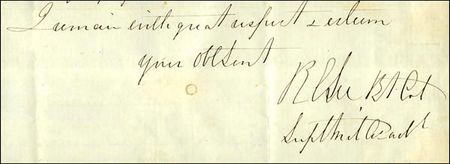 I remain with great respect & esteem
your Obt Servt
R E Lee Bt Col
Supt Mil Acad